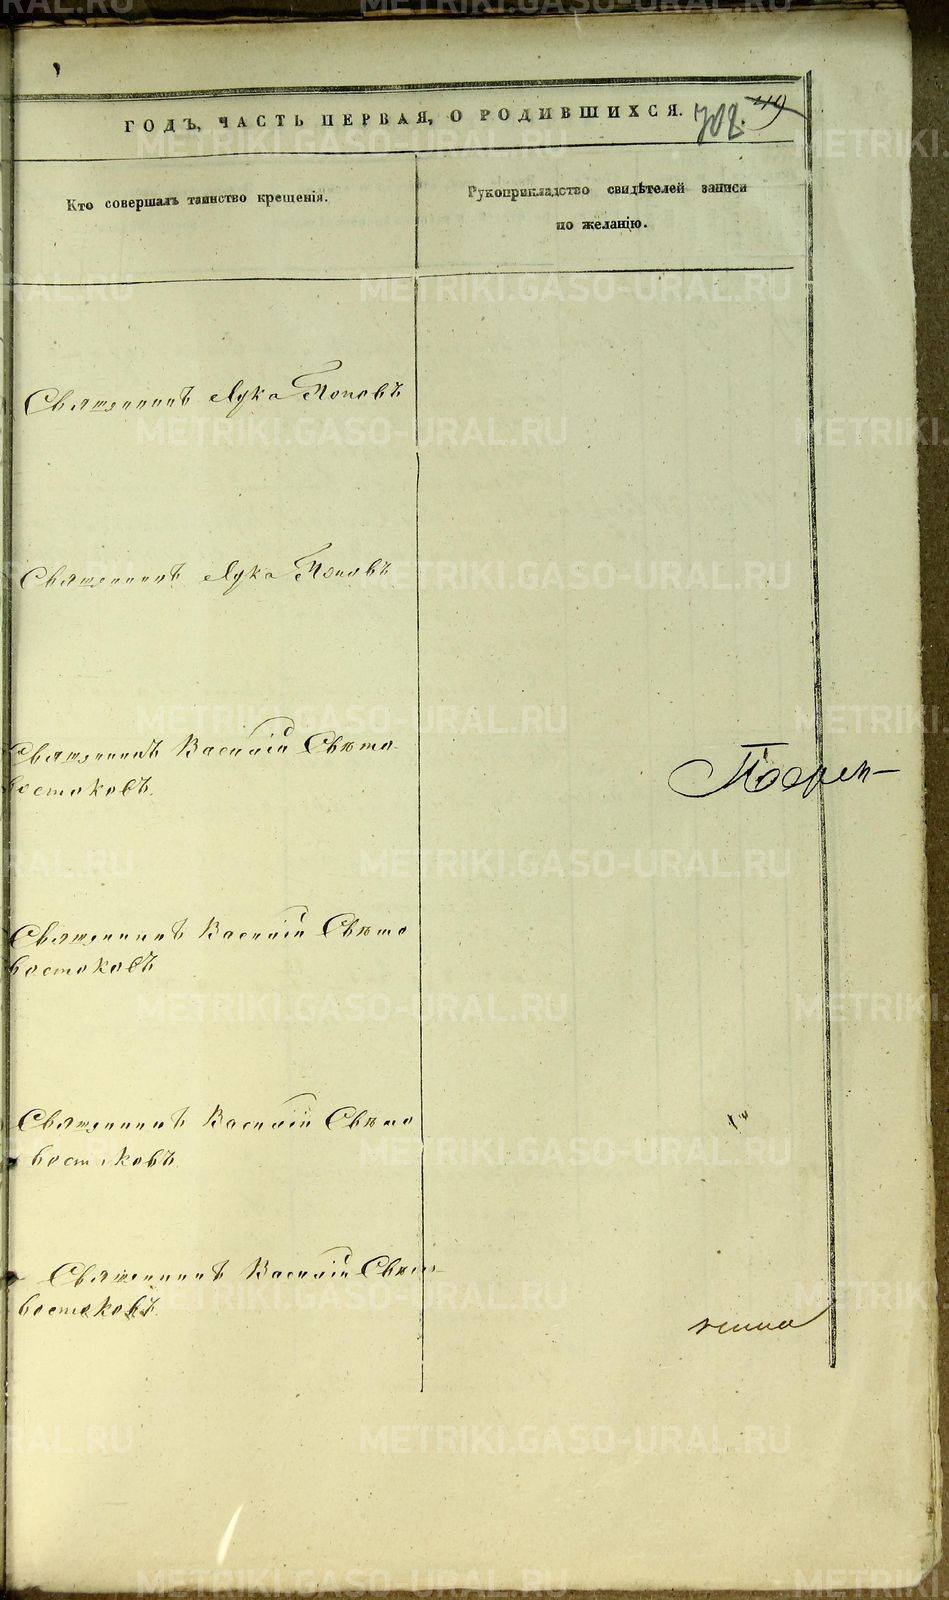 ГОДЪ, ЧАСТЬ ПЕРВАЯ, О РОДИВШИХСЯ.
708. 419
Кто совершалъ таинство крещенія.
Рукоприкладство свидѣтелей записи
по желанію.
Священникъ Лука Поповъ
Священникъ Лука Поповъ
Священникъ Василій Свѣто-
востоковъ.
Священникъ Василій Свѣто
востоковъ
Священникъ Василій Свѣто
востоковъ
Священникъ Василій Свѣто-
востоковъ.
METRIKI.GASO-URAL.RU